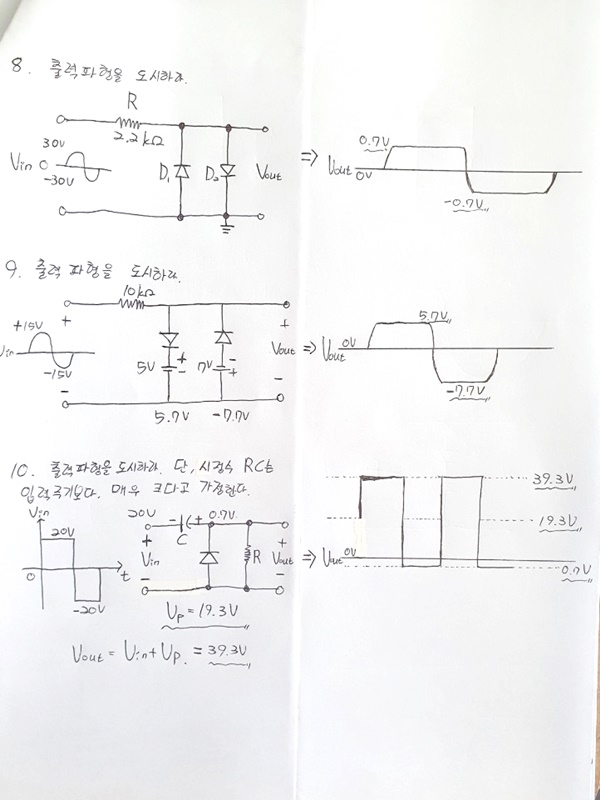 8. 출력파형을 도시하라.
R
2.2kΩ
30V
Vin 0
-30V
D₁ D₂ Vout
⇒ Vout
0.7V
0V
-0.7V
9. 출력 파형을 도시하라.
10kΩ
+15V
Vin
-15V
+ -
5V + -
7V - +
+ Vout -
5.7V -7.7V
⇒ Vout
0V
5.7V
-7.7V
10. 출력파형을 도시하라. 단, 시정수 RC는
입력주기보다 매우 크다고 가정한다.
Vin
20V
0 t
-20V
20V - + 0.7V
C
+ Vin -
R
+ Vout -
⇒ Vout
0V
39.3V
19.3V
0.7V
Vp = 19.3V
Vout = Vin + Vp = 39.3V